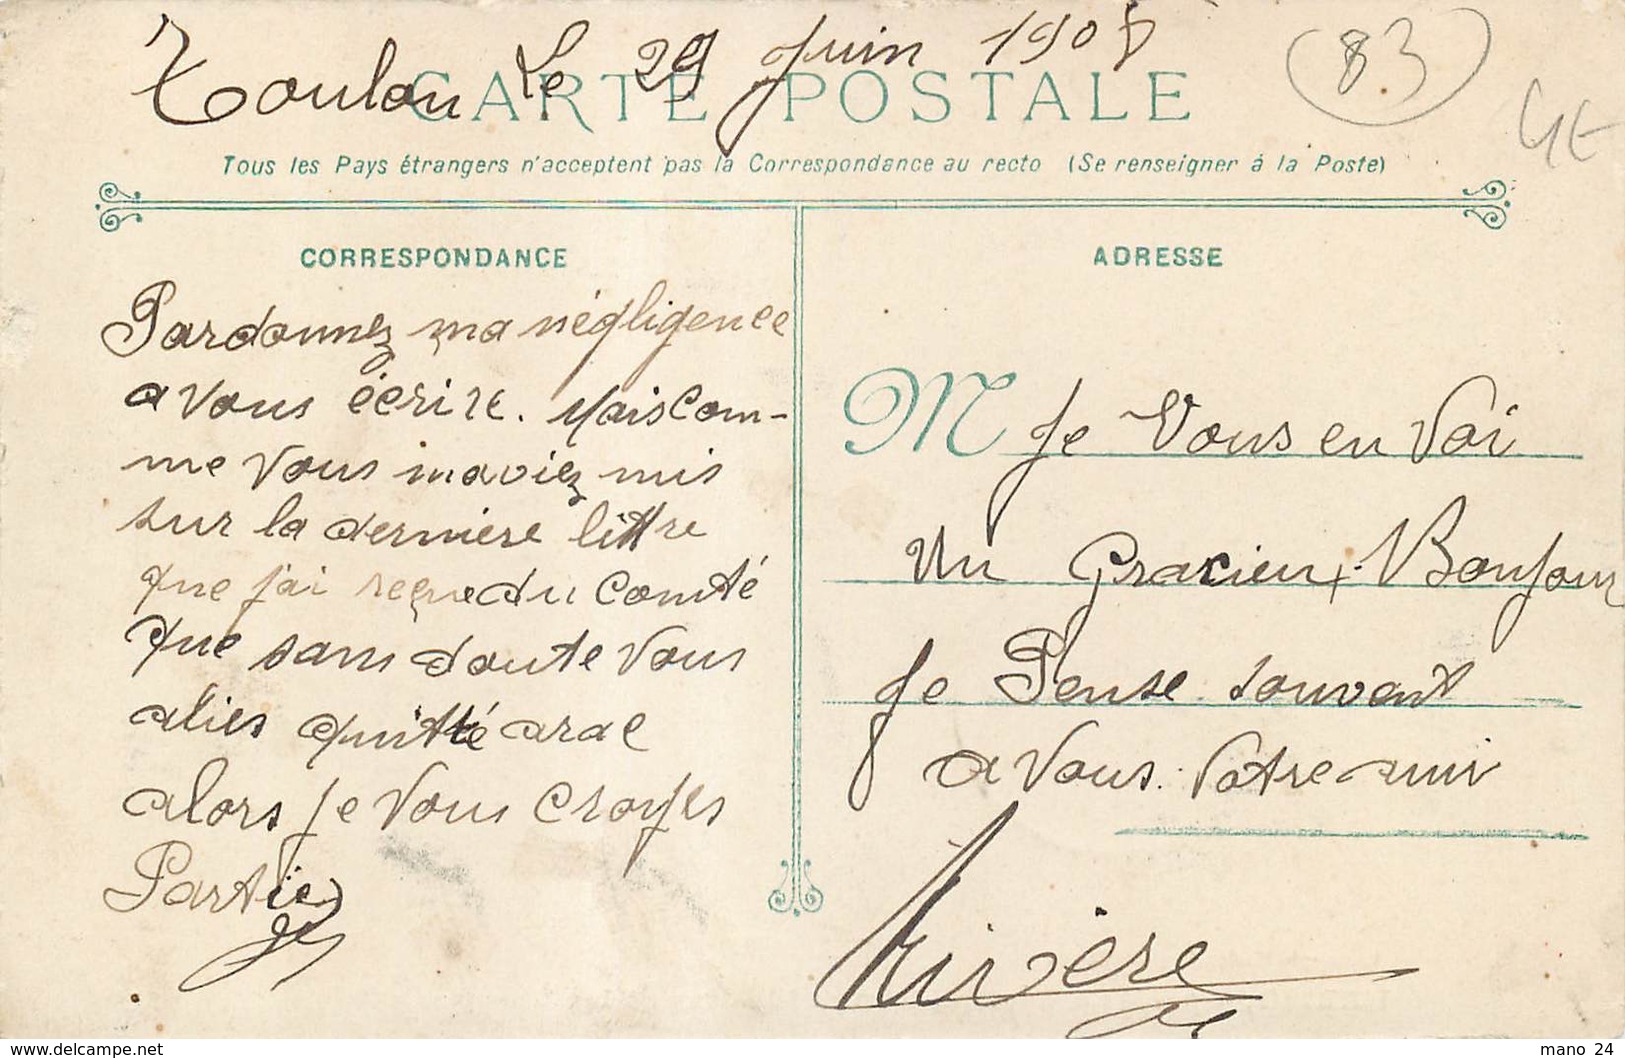 Toulon Le 29 Juin 1908
(83)
CARTE POSTALE
Tous les Pays étrangers n'acceptent pas la Correspondance au recto (Se renseigner à la Poste)
CORRESPONDANCE
Pardonnez ma négligence
a vous écrire. Mais com-
me vous maviez mis
sur la dernière littre
que j'ai reçue du Comté
que sans doute vous
alies quitté arac
alors je vous croyes
Partie
ADRESSE
M Je Vous en voi
un Gracieux Bonjour
Je Pense souvent
a vous. Votre ami
Rivière
www.delcampe.net
mano 24